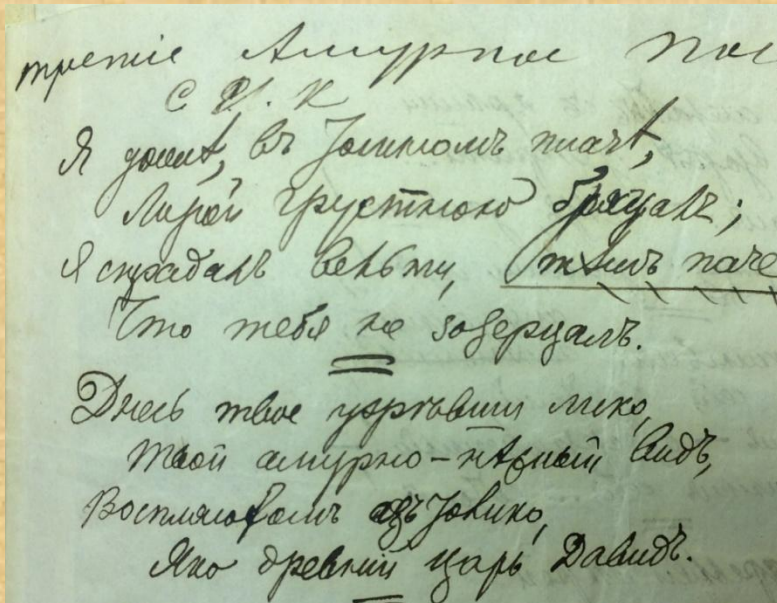 третіе Амурное пос
С И. К
Я долѣ, въ золитомъ плачѣ,
Лирой грустною бряцалъ;
Я страдалъ вельми, тѣмъ паче
Что тебя не зозерцалъ.
Днесь твое узрѣвши лико,
Твой амурно-нѣжный видъ,
Воспляс азъ зовико,
Яко древній царь Давидъ.